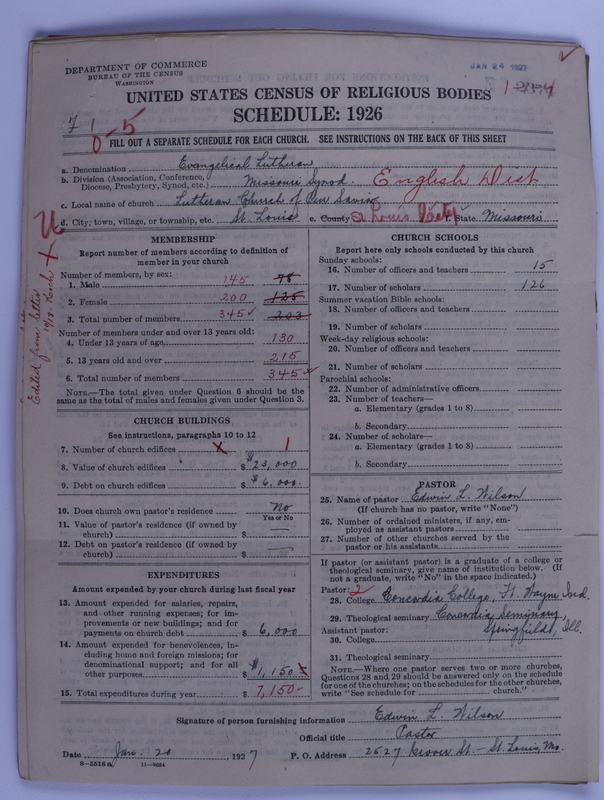 DEPARTMENT OF COMMERCE
BUREAU OF THE CENSUS
WASHINGTON
JAN 24 1927
UNITED STATES CENSUS OF RELIGIOUS BODIES
SCHEDULE: 1926
FILL OUT A SEPARATE SCHEDULE FOR EACH CHURCH. SEE INSTRUCTIONS ON THE BACK OF THIS SHEET
a. Denomination Evangelical Lutheran
b. Division (Association, Conference, Diocese, Presbytery, Synod, etc.) Missouri Synod. English Dist
c. Local name of church Lutheran Church of Our Savior
d. City, town, village, or township, etc. St. Louis e. County St Louis f. State Missouri
Edited from letter
MEMBERSHIP
Report number of members according to definition of member in your church
Number of members, by sex:
1. Male 145 78
2. Female 200 125
3. Total number of members 345 203
Number of members under and over 13 years old:
4. Under 13 years of age 130
5. 13 years old and over 215
6. Total number of members 345
NOTE.—The total given under Question 6 should be the same as the total of males and females given under Question 3.
CHURCH BUILDINGS
See instructions, paragraphs 10 to 12
7. Number of church edifices 1
8. Value of church edifices $ 23,000
9. Debt on church edifices $ 6,000.
10. Does church own pastor's residence No
Yes or No
11. Value of pastor's residence (if owned by church) $
12. Debt on pastor's residence (if owned by church) $
EXPENDITURES
Amount expended by your church during last fiscal year
13. Amount expended for salaries, repairs, and other running expenses; for improvements or new buildings; and for payments on church debt $ 6,000
14. Amount expended for benevolences, including home and foreign missions; for denominational support; and for all other purposes $ 1,150
15. Total expenditures during year $ 7,150
CHURCH SCHOOLS
Report here only schools conducted by this church
Sunday schools:
16. Number of officers and teachers 15
17. Number of scholars 126
Summer vacation Bible schools:
18. Number of officers and teachers
19. Number of scholars
Week-day religious schools:
20. Number of officers and teachers
21. Number of scholars
Parochial schools:
22. Number of administrative officers
23. Number of teachers—
a. Elementary (grades 1 to 8)
b. Secondary
24. Number of scholars—
a. Elementary (grades 1 to 8)
b. Secondary
PASTOR
25. Name of pastor Edwin L. Wilson
(If church has no pastor, write "None")
26. Number of ordained ministers, if any, employed as assistant pastors
27. Number of other churches served by the pastor or his assistants
If pastor (or assistant pastor) is a graduate of a college or theological seminary, give name of institution below. (If not a graduate, write "No" in the space indicated.)
Pastor: 2
28. College Concordia College, Ft. Wayne Ind.
29. Theological seminary Concordia Seminary
Assistant pastor: Springfield, Ill.
30. College
31. Theological seminary
NOTE.—Where one pastor serves two or more churches, Questions 28 and 29 should be answered only on the schedule for one of the churches; on the schedules for the other churches, write "See schedule for church."
Signature of person furnishing information Edwin L. Wilson
Official title Pastor
Date Jan. 20 1927 P. O. Address 2527 St.—St. Louis, Mo.
8-5518a 11-9024